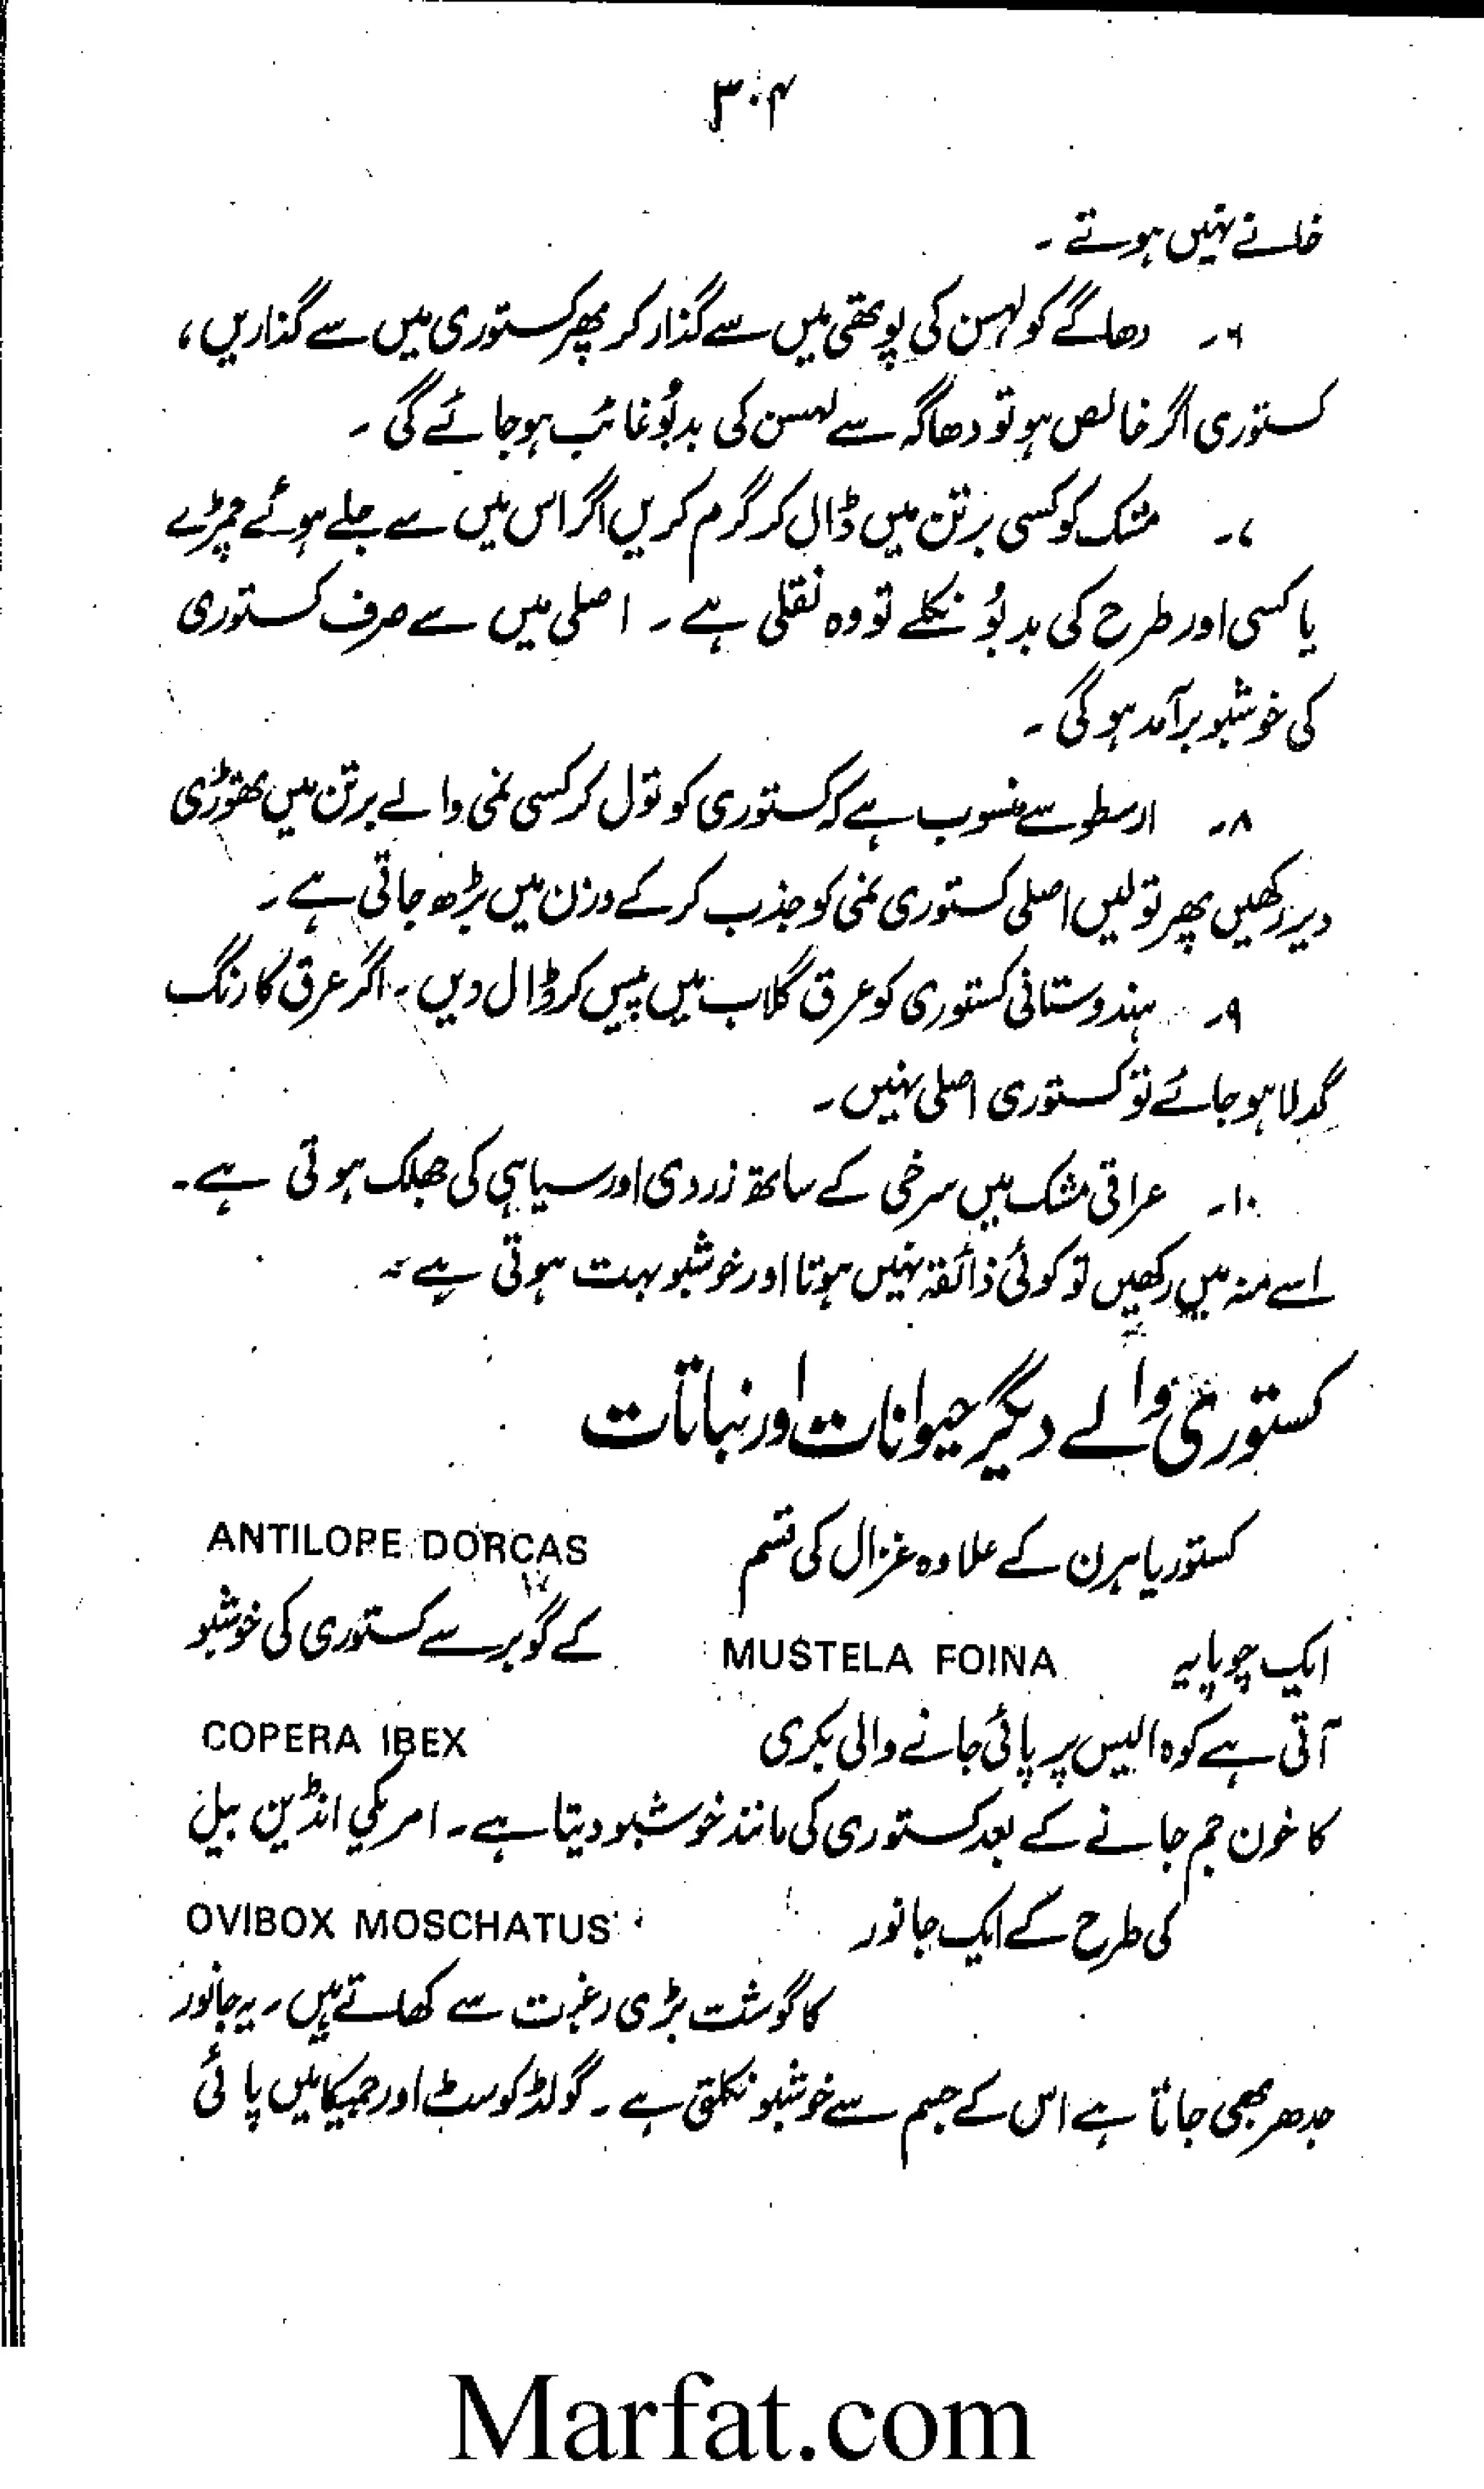 ۳۰۴
خانے نہیں ہوتے ۔
۶۔ دھاگے کو لہسن کی پوتھی میں سے گذار کر پھر کستوری میں سے گذاریں،
کستوری اگر خالص ہو تو دھاگہ سے لہسن کی بدبُو غائب ہو جائے گی ۔
۷۔ مشک کو کسی برتن میں ڈال کر گرم کریں اگر اس میں سے جلے ہوئے چمڑے
یا کسی اور طرح کی بدبُو نکلے تو وہ نقلی ہے ۔ اصلی میں سے صرف کستوری
کی خوشبو برآمد ہو گی ۔
۸۔ ارسطو سے منسوب ہے کہ کستوری کو تول کر کسی نمی والے برتن میں تھوڑی
دیر رکھیں پھر تولیں اصلی کستوری نمی کو جذب کر کے وزن میں بڑھ جاتی ہے ۔
۹۔ ہندوستانی کستوری کو عرق گلاب میں پیس کر ڈال دیں ۔ اگر عرق کا رنگ
گدلا ہو جائے تو کستوری اصلی نہیں ۔
۱۰۔ عراقی مشک میں سرخی کے ساتھ زردی اور سیاہی کی جھلک ہوتی ہے ۔
اسے منہ میں رکھیں تو کوئی ذائقہ نہیں ہوتا اور خوشبو بہت ہوتی ہے ۔
کستوری والے دیگر حیوانات اور نباتات
کستوریا ہرن کے علاوہ غزال کی قسم ANTILOPE DORCAS
ایک چوپایہ MUSTELA FOINA کے گوبر سے کستوری کی خوشبو
آتی ہے کوہ الپس پر پائی جانے والی بکری COPERA IBEX
کا خون جم جانے کے بعد کستوری کی مانند خوشبو دیتا ہے ۔ امریکی انڈین بیل
کی طرح کے ایک جانور OVIBOX MOSCHATUS
کا گوشت بڑی رغبت سے کھاتے ہیں ۔ یہ جانور
جدھر بھی جاتا ہے اس کے جسم سے خوشبو نکلتی ہے ۔ گولڈ کوسٹ اور جمیکا میں پائی
Marfat.com